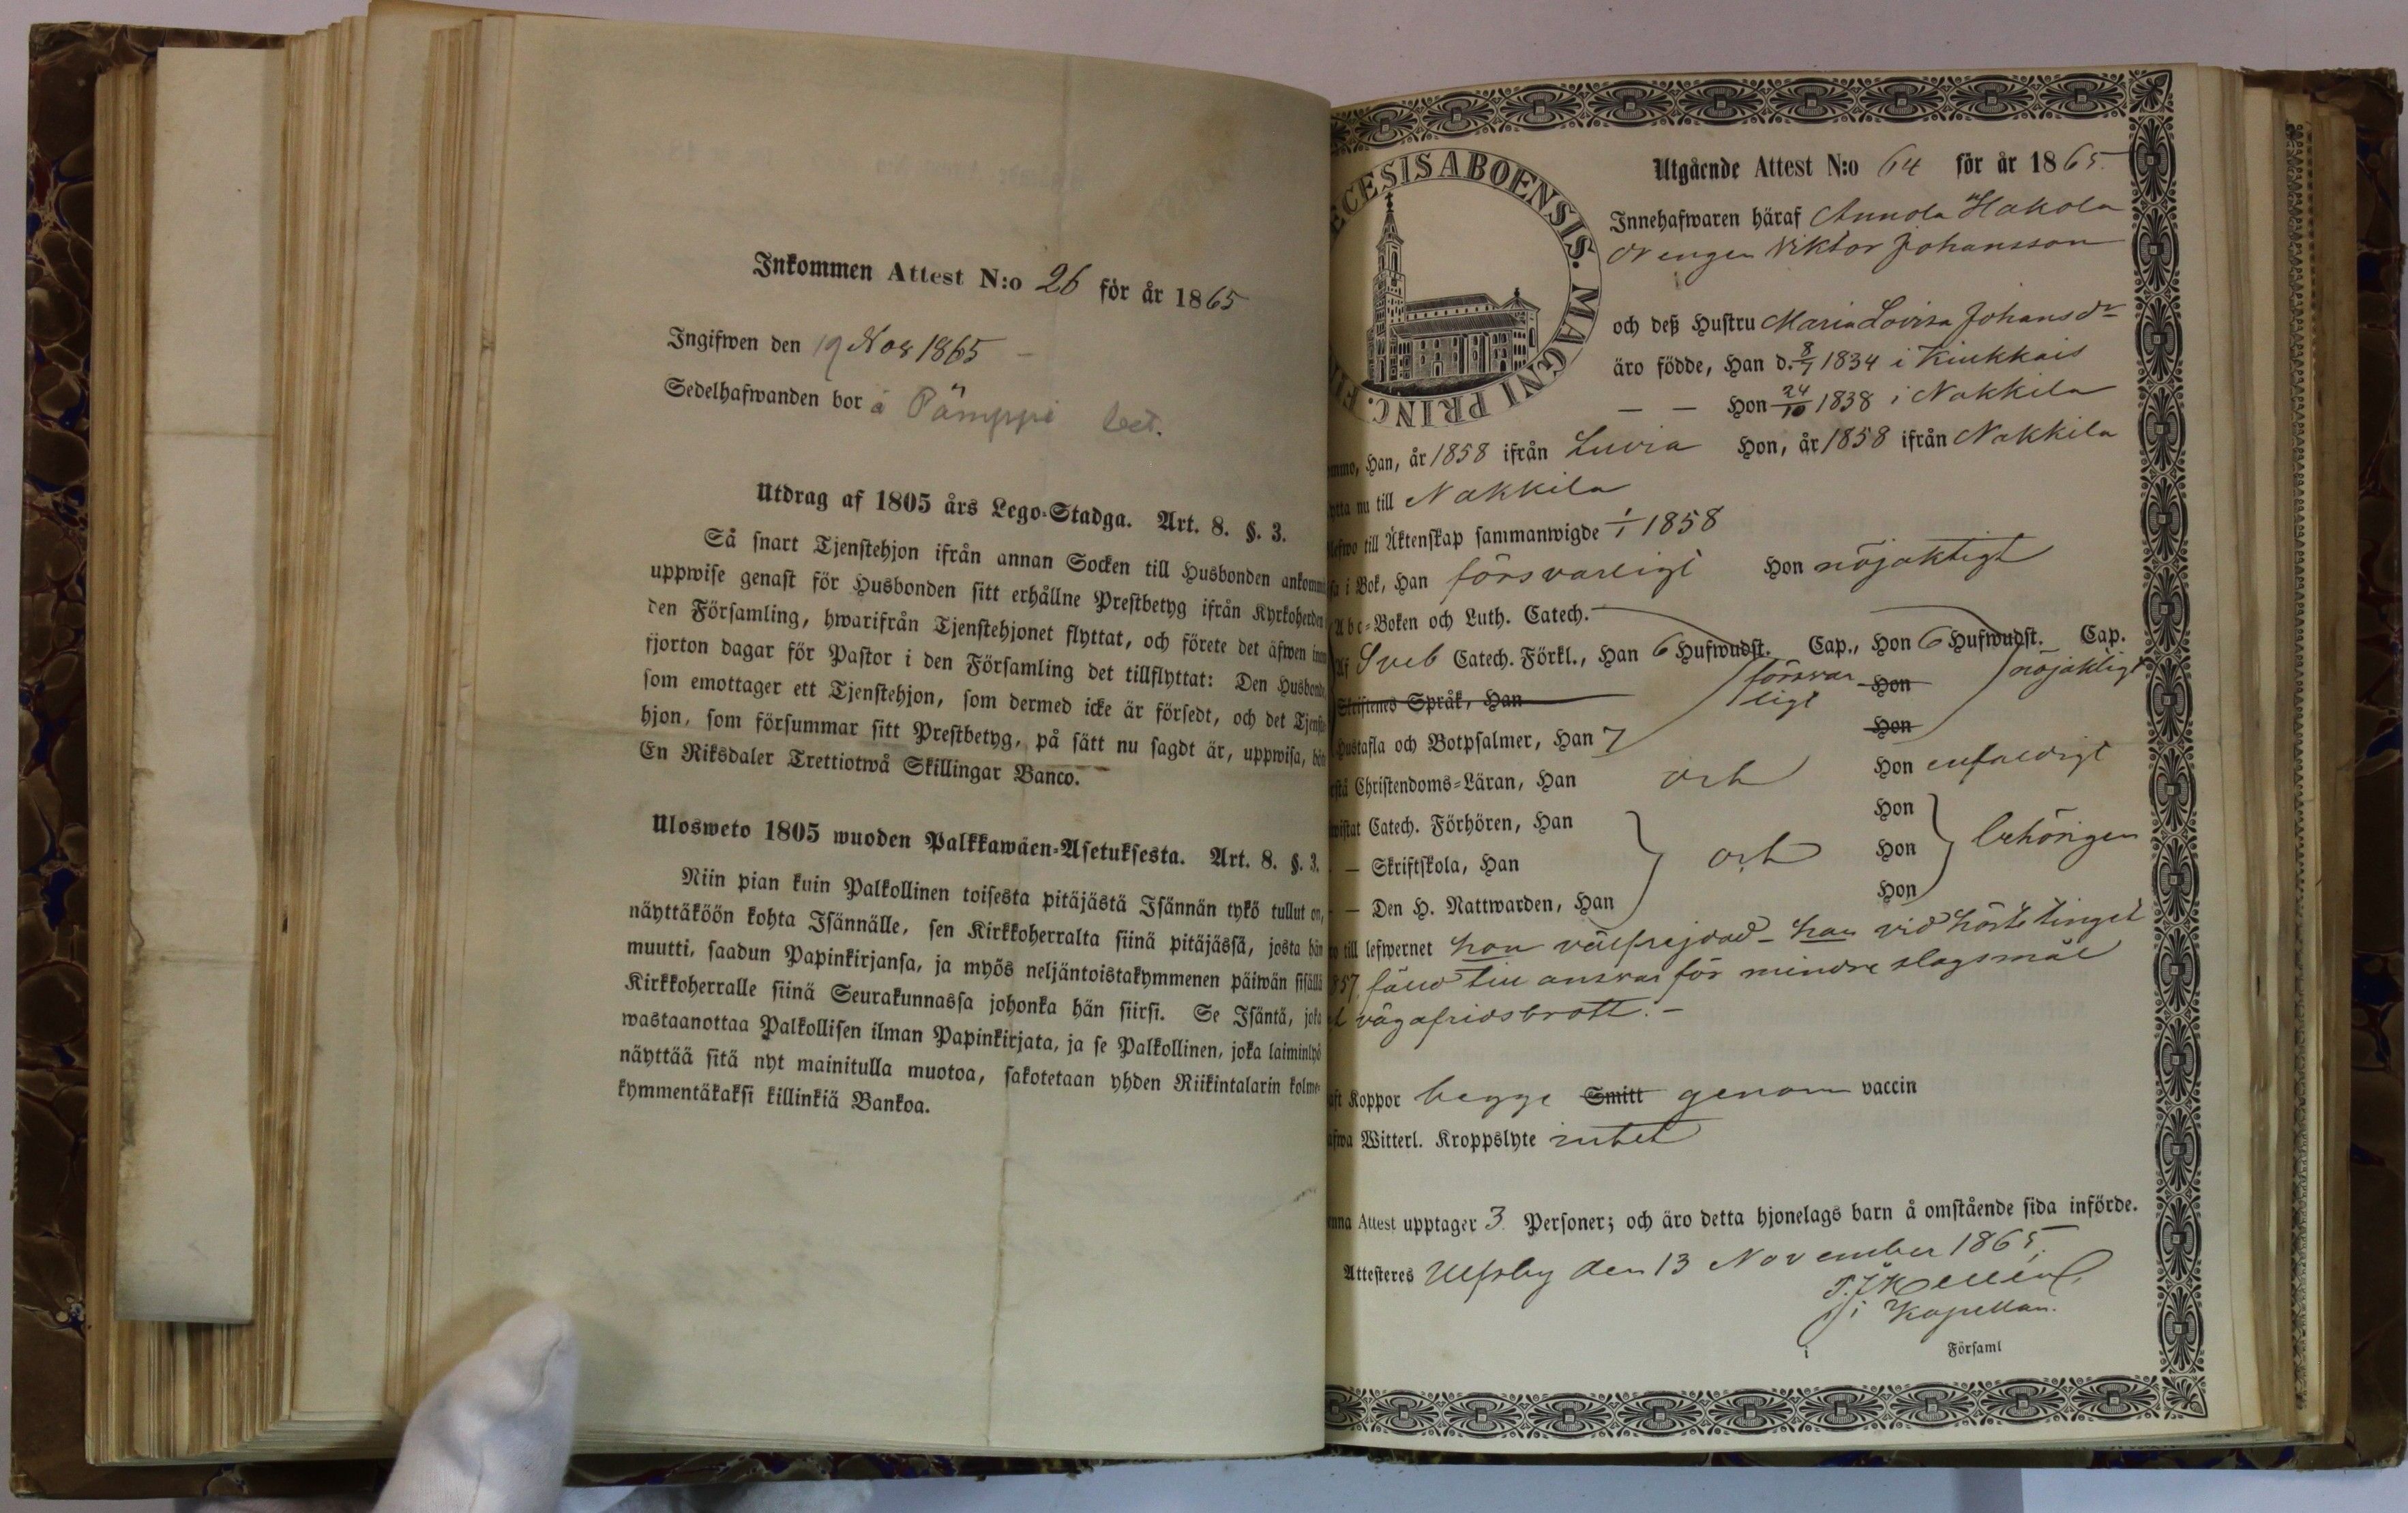 Inkommen Attest N:o 26 för år 1865
Ingifwen den 19 Nov 1865
Sedelhafwanden bor å Pämppi
Utdrag af 1805 års Lego-Stadga. Art. 8. §. 3.
Så snart Tjenstehjon ifrån annan Socken till Husbonden ankommit
uppwise genast för Husbonden sitt erhållne Prestbetyg ifrån Kyrkoherden
den Församling, hwarifrån Tjenstehjonet flyttat, och förete det äfwen inom
fjorton dagar för Pastor i den Församling det tillflyttat: Den Husbonde,
som emottager ett Tjenstehjon, som dermed icke är försedt, och det Tjenste-
hjon, som försummar sitt Prestbetyg, på sätt nu sagdt är, uppwisa, böte
En Riksdaler Trettiotwå Skillingar Banco.
Ulosweto 1805 wuoden Palkkawäen-Asetuksesta. Art. 8. §. 3.
Niin pian kuin Palkollinen toisesta pitäjästä Isännän tykö tullut on,
näyttäköön kohta Isännälle, sen Kirkkoherralta siinä pitäjässä, josta hän
muutti, saadun Papinkirjansa, ja myös neljäntoistakymmenen päiwän sisällä
Kirkkoherralle siinä Seurakunnassa johonka hän siirsi. Se Isäntä, joka
wastaanottaa Palkollisen ilman Papinkirjata, ja se Palkollinen, joka laiminlyö
näyttää sitä nyt mainitulla muotoa, sakotetaan yhden Riikintalarin kolme-
kymmentäkaksi killinkiä Bankoa.
ECESIS ABOENSIS. MAGNI PRINC. FI
Utgående Attest N:o 64 för år 1865.
Innehafwaren häraf Annola Hakola
Drengen Viktor Johansson
och deß Hustru Maria Lovisa Johansdr
äro födde, Han d. 8/7 1834 i Kiukkais
— — Hon 24/10 1838 i Nakkila
mmo, Han, år 1858 ifrån Luvia Hon, år 1858 ifrån Nakkila
ytta nu till Nakkila
lefwo till Äktenskap sammanwigde 1/1 1858
sa i Bok, Han försvarligt Hon nöjaktigt
Abc-Boken och Luth. Catech.
Af Sveb Catech. Förkl., Han 6 Hufwudst. Cap., Hon 6 Hufwudst. Cap.
Skriftenes Språk, Han försvarligt Hon nöjaktigt
Hustafla och Botpsalmer, Han 7 Hon
rstå Christendoms-Läran, Han och Hon enfaldigt
wistat Catech. Förhören, Han Hon
— Skriftskola, Han och Hon behörigen
— Den H. Nattwarden, Han Hon
till lefwernet hon välfrejdad - han vid höste tinget
857 fälld till ansvar för mindre slagsmål
vägafridsbrott. -
aft Koppor begge Smitt genom vaccin
afwa Witterl. Kroppslyte intet
enna Attest upptager 3. Personer; och äro detta hjonelags barn å omstående sida införde.
Attesteres Ulfsby den 13 November 1865.
Kapellan.
i Församl